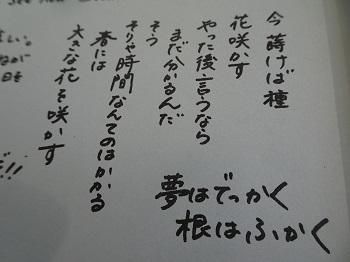 今蒔けば種
花咲かす
やった後言うなら
まだ分かるんだ
そう
そりゃ時間なんてのはかかる
春には
大きな花を咲かす
夢はでっかく
根はふかく